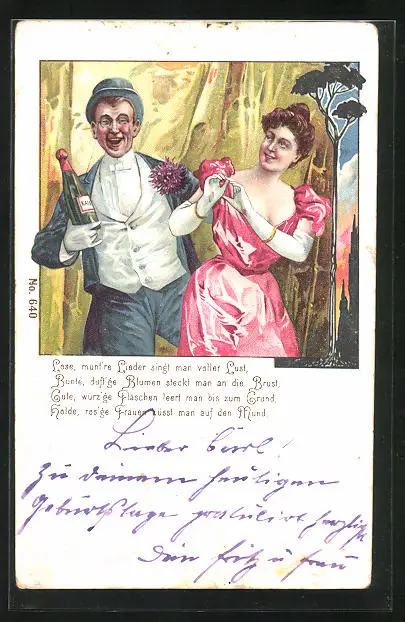 No. 640
Lose, munt're Lieder singt man voller Lust,
Bunte, duft'ge Blumen steckt man an die Brust,
Gute, würz'ge Flaschen leert man bis zum Grund,
Holde, ros'ge Frauen küsst man auf den Mund.
Lieber !
Zu deinem heutigen
Geburtstage gratulirt herzlichst
Dein Fritz u Frau